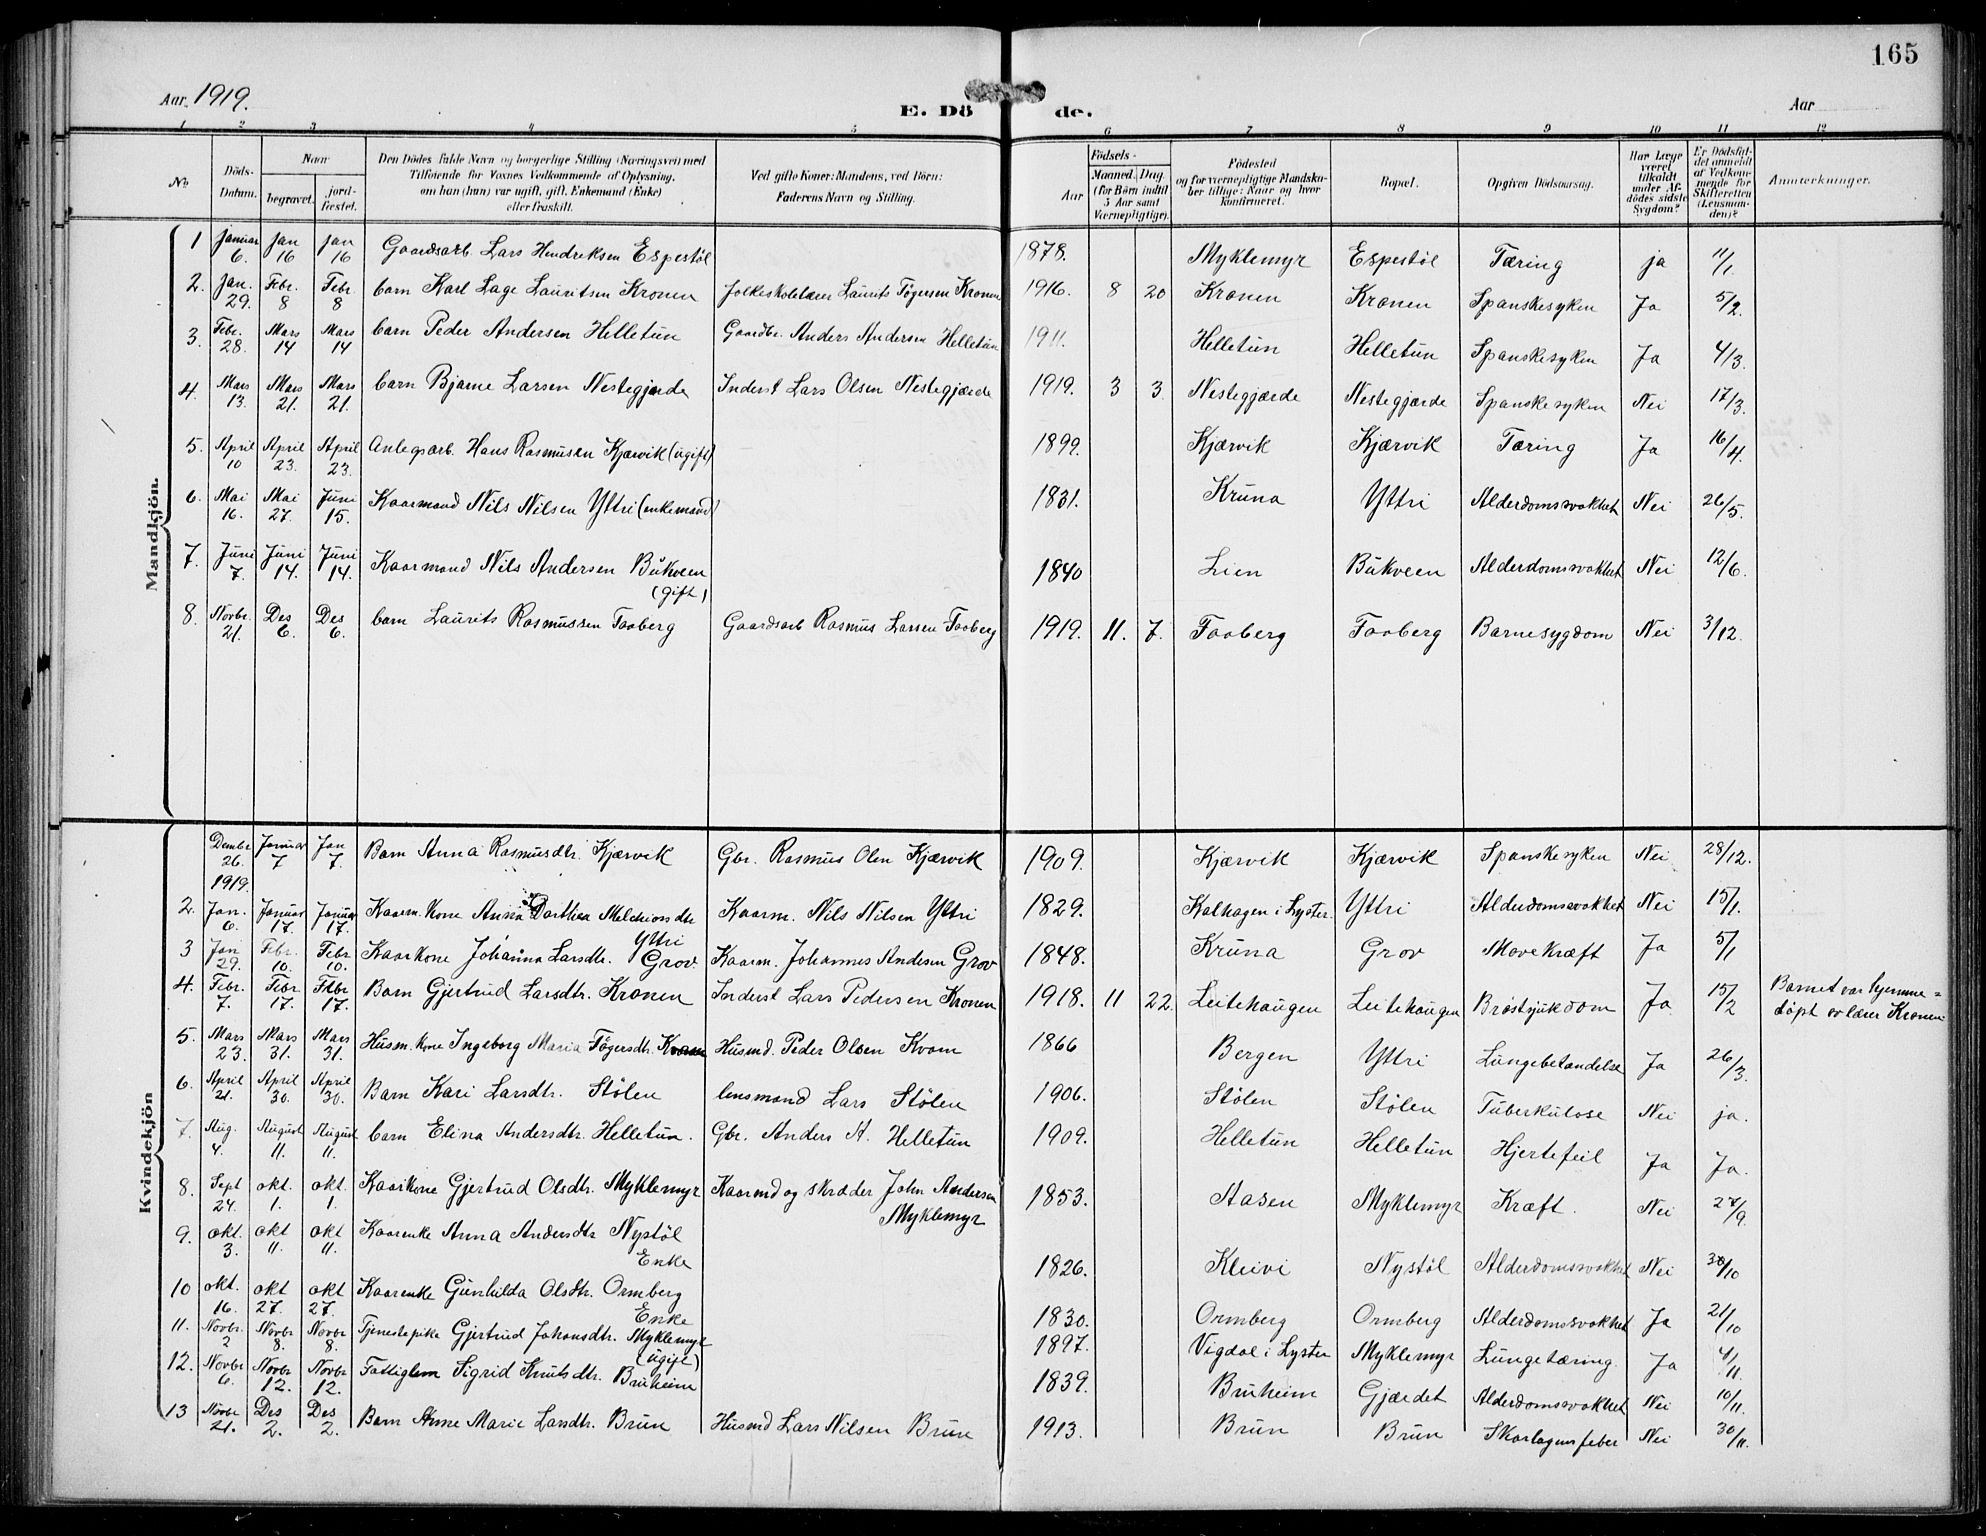 165
Aar. 1919.
E. Dö de.
Aar
1 2 3 4 5 6 7 8 9 10 11 12
No.
Döds-Datum.
Naar
begravet.
jord-fæstet.
Den Dödes fulde Navn og borgerlige Stilling (Næringsvei) med
Tilføiende for Voxnes Vedkommende af Oplysning,
om han (hun) var ugift, gift, Enkemand (Enke)
eller fraskilt.
Ved gifte Koner: Mandens, ved Börn:
Faderens Navn og Stilling.
Födsels-
Aar
Maaned. Dag.
(for Börn indtil
5 Aar samt
Værnepligtige).
Födested
og for værnepligtige Mandska-
ber tillige: Naar og hvor
konfirmeret.
Bopæl.
Opgiven Dödsaarsag.
Har Læge
været
tilkaldt
under Af-
dödes sidste
Sygdom?
Er Dödsfal-
det anmeldt
af Vedkom-
mende for
Skifteretten
(Lensman-
den)?
Anmærkninger.
Mandkjön.
1 Januar 6. Jan 16 Jan 16 Gaardsarb. Lars Hendriksen Espestöl 1878. Myklemyr Espestöl Tæring ja 11/1.
2. Jan. 29. Febr. 8 Febr. 8 barn Karl Lage Lauritsen Kronen Folkeskolelærer Laurits Tögersen Kronen 1916. 8 20 Kronen Kronen Spanskesyken Ja 5/2.
3. Febr. 28. Mars 14 Mars 14 barn Peder Andersen Helletun Gaardbr. Anders Andersen Helletun 1911. Helletun Helletun Spanskesyken Ja 4/3.
4. Mars 13. Mars 21. Mars 21. barn Bjarne Larsen Nestegjærde Inderst Lars Olsen Nestegjærde 1919. 3 3 Nestegjærde Nestegjærde Spanskesyken Nei 17/3.
5. April 10 April 23. April 23. Anlegsarb. Hans Rasmusen Kjærvik (ugift) 1899. Kjærvik Kjærvik Tæring Ja 16/4.
6. Mai 16. Mai 27. Juni 15. Kaarmand Nils Nilsen Yttri (enkemand) 1831. Kruna Yttri Alderdomssvakhet Nei 26/5.
7. Juni 7. Juni 14. Juni 14. Kaarmand Nils Andersen Bukveen 1840 Lien Bukveen Alderdomssvakhet Nei 12/6.
(gift)
8. Novbr. 21. Des 6. Des 6. barn Laurits Rasmussen Taaberg Gaardsarb Rasmus Larsen Taaberg 1919. 11. 7. Taaberg Taaberg Barnesygdom Nei 3/12.
Kvindekjön
Dembr 26. Januar 7 Jan 7. Barn Anna Rasmusdtr. Kjærvik Gbr. Rasmus Olsn Kjærvik 1909. Kjærvik Kjærvik Spanskesyken Nei 28/12.
1919.
2. Jan. 6. Januar 17. Januar 17. Kaarm. Kone Anna Dorthea Melchiorsdtr Kaarm. Nils Nilsen Yttri 1829. Kalhagen i Lyster. Yttri Alderdomssvakhet Nei 15/1.
Yttri
3 Jan 29. Febr. 10. Febr 10. Kaarkone Johanna Larsdtr. Grov. Kaarm. Johannes Andersen Grov 1848. Kruna Grov Mavekræft Ja 5/1
4. Febr. 7. Febr 17. Febr 17. Barn Gjertrud Larsdtr. Kronen Inderst Lars Pedersen Kronen 1918. 11 22. Leitehaugen Leitehaugen Brøstsjukdom Ja 15/2 Barnet var hjemme=
döpt av lærer Kronen
5. Mars 23. Mars 31. Mars 31. Husm. kone Ingeborg Maria Tögersdtr. Kvam Husmd. Peder Olsen Kvam 1866 Bergen Yttri Lungebetændelse Ja 26/3.
6. April 21. April 30. April 30. Barn Kari Larsdtr. Stölen lensmand Lars Stölen 1906. Stölen Stölen Tuberkulose Nei ja.
7. Aug. 4. August 11. August 11. barn Elina Andersdtr. Helletun. Gbr. Anders A. Helletun 1909. Helletun Helletun Hjertefeil Ja Ja.
8. Sept 24. okt. 1. okt. 1. Kaarkone Gjertrud Olsdtr. Myklemyr Kaarmd og skræder John Andersen 1853. Aasen Myklemyr Kræft. Nei 27/9.
Myklemyr
9. okt. 3. okt 11. okt 11. Kaarenke Anna Andersdtr Nystöl
Enke 1826. Kleivi Nystöl Alderdomssvakhet Nei 30/10
10 okt. 16. okt 27. okt 27. Kaarenke Gunhilda Olsdtr. Ormberg
Enke 1830. Ormberg Ormberg Alderdomssvakhet Ja 21/10
11. Novbr. 2 Novbr 8. Novbr 8. Tjenestepike Gjertrud Johansdtr. Myklemyr 1897. Vigdal i Lyster Myklemyr Lungetæring. Ja 4/11.
(ugift)
12. Novbr 6. Novbr 12. Novbr 12. Fattiglem Sigrid Knutsdtr. Bruheim 1839. Bruheim Gjærdet Alderdomssvakhet Nei 10/11.
13 Novbr 21. Des 2. Des 2. Barn Anne Marie Larsdtr. Brun Husmd Lars Nilsen Brun 1913. Brun Brun Skarlagensfeber Nei 30/11.